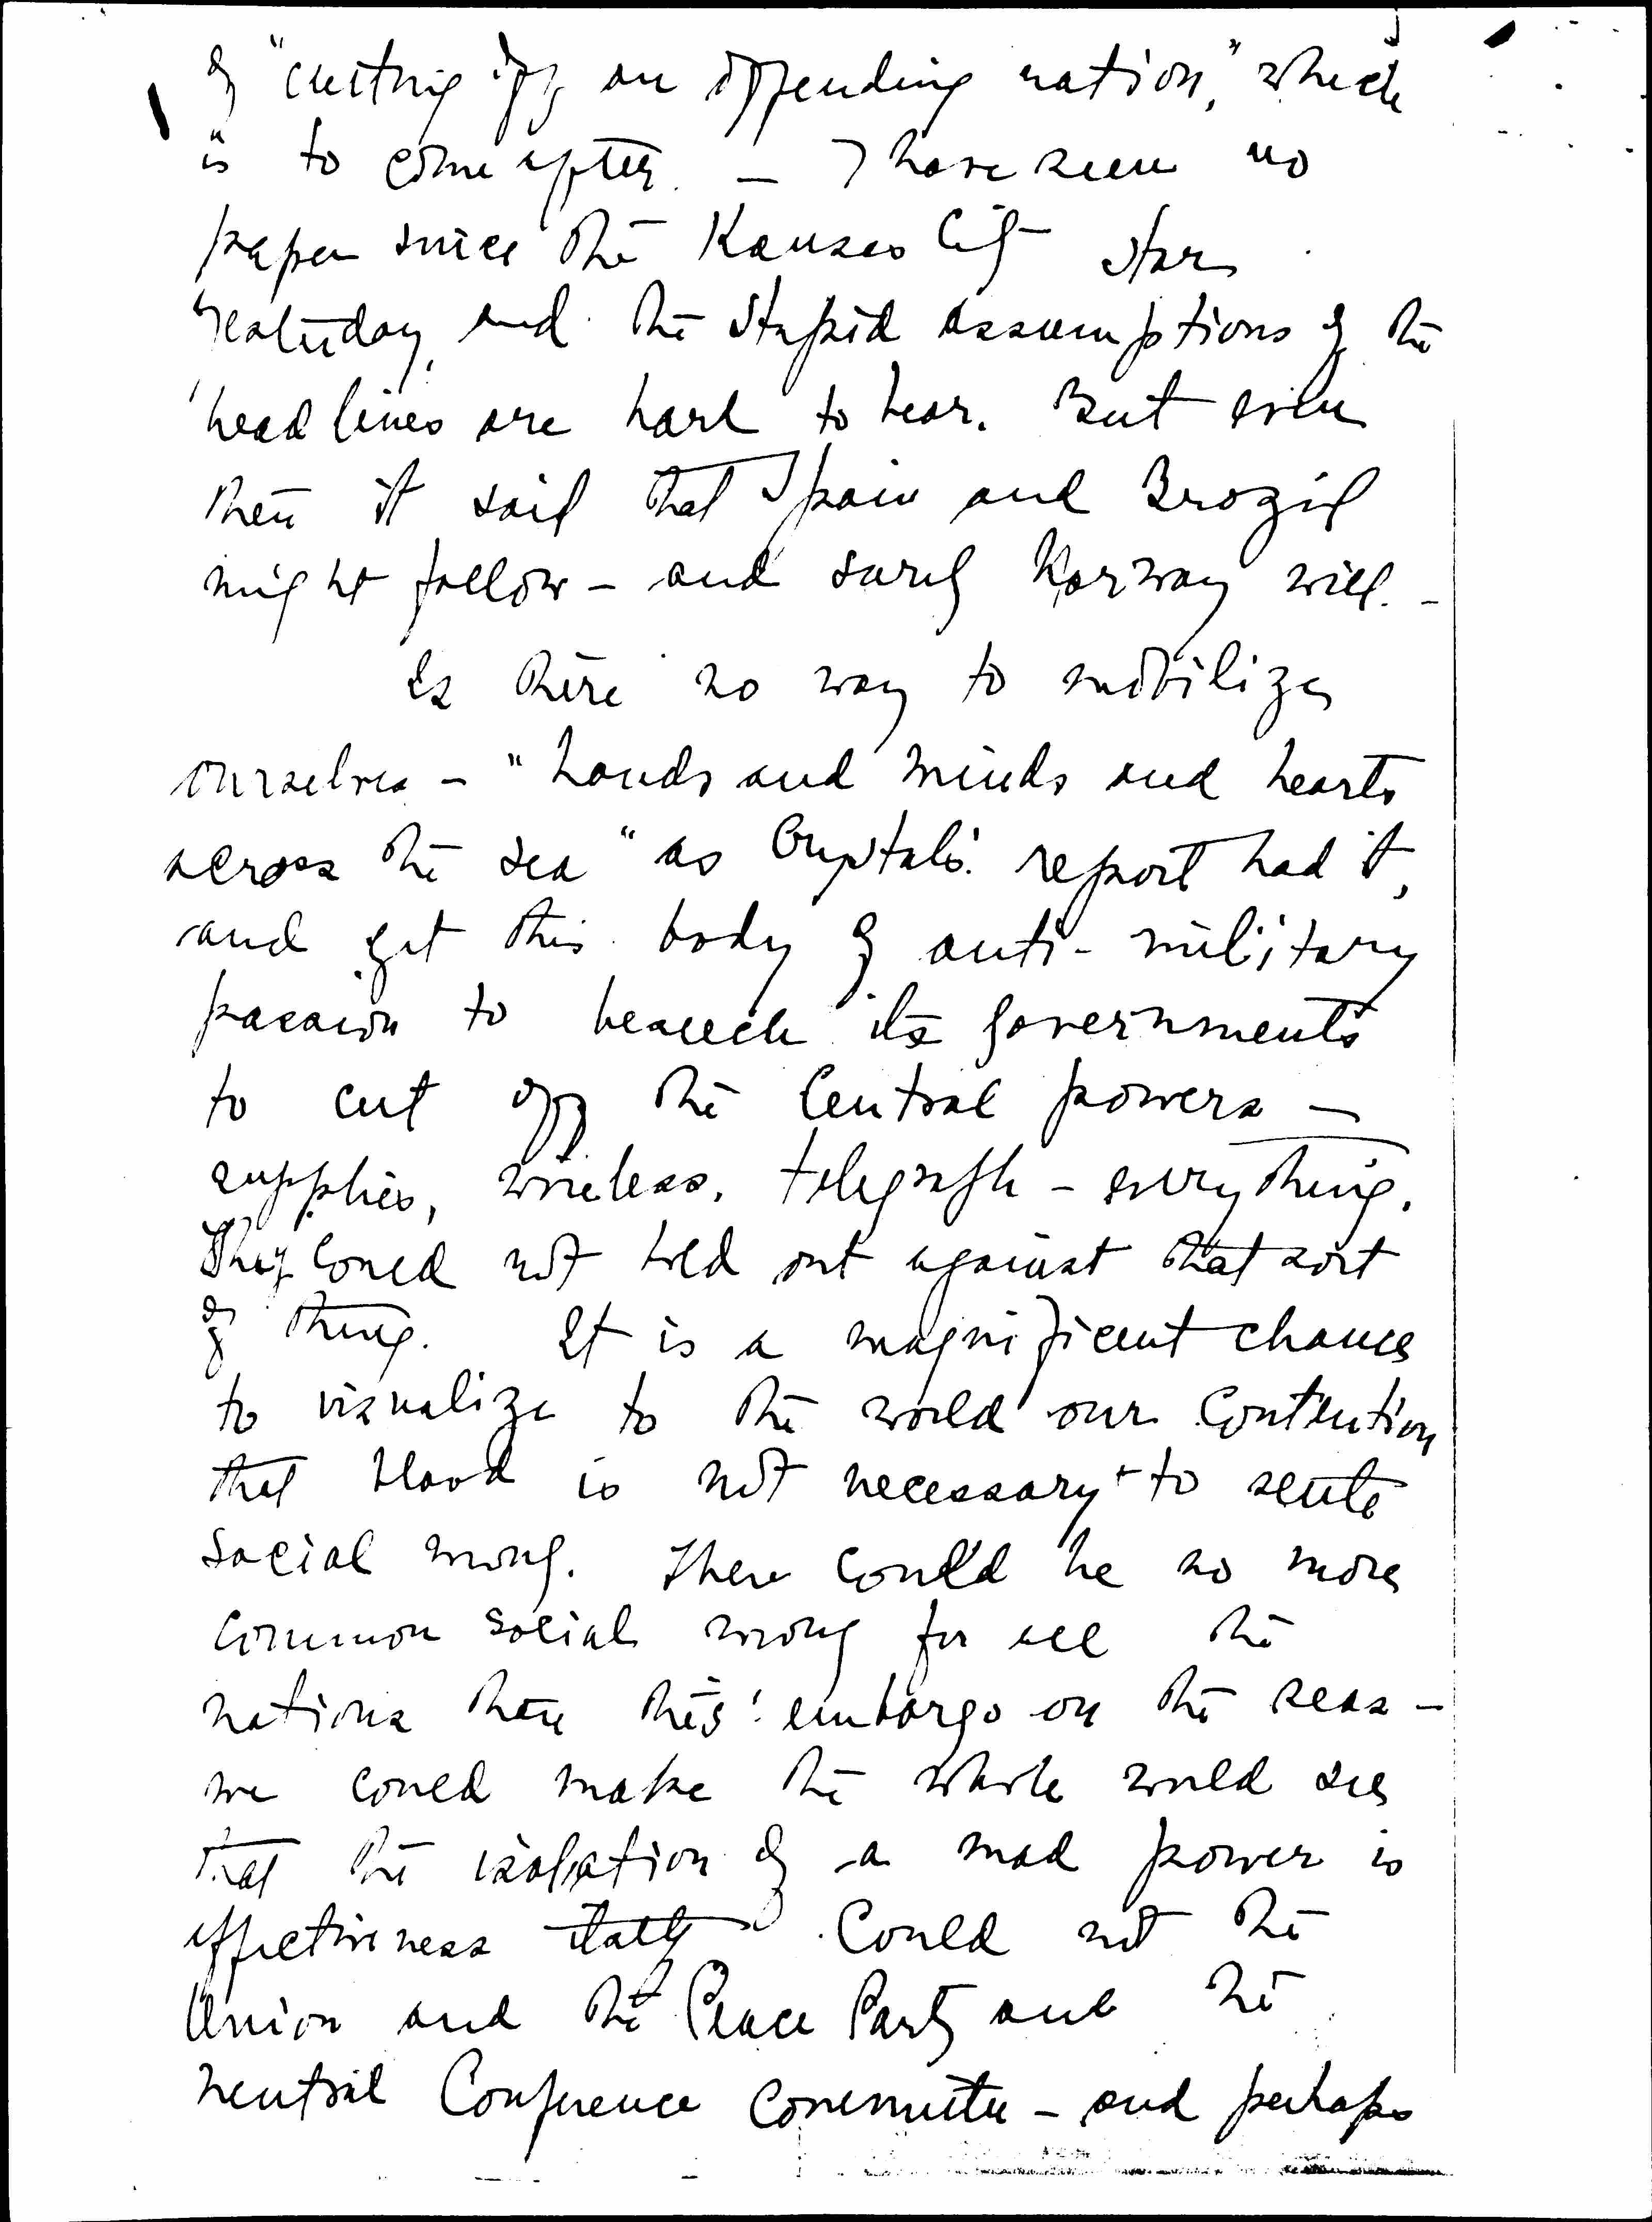 of "cutting off an offending nation," which
is to come after. — I have seen no
paper since the Kansas City Star
yesterday, and the stupid assumptions of the
headlines are hard to bear. But even
then it said that Spain and Brazil
might follow – and surely Norway will. –
Is there no way to mobilize
ourselves – "hands and minds and hearts
across the sea" as Crystal's report had it,
and get this body of anti-military
passion to beseech its governments
to cut off the Central powers —
supplies, wireless, telegraph – everything.
They could not hold out against that sort
of thing. It is a magnificent chance
to visualize to the world our contention
that blood is not necessary to settle
social wrong. There could be no more
common social wrong for all the
nations than this embargo on the seas –
we could make the whole world see
that the isolation of a mad power is
effectiveness itself. Could not the
Union and the Peace Party and the
neutral Conference Committee – and perhaps